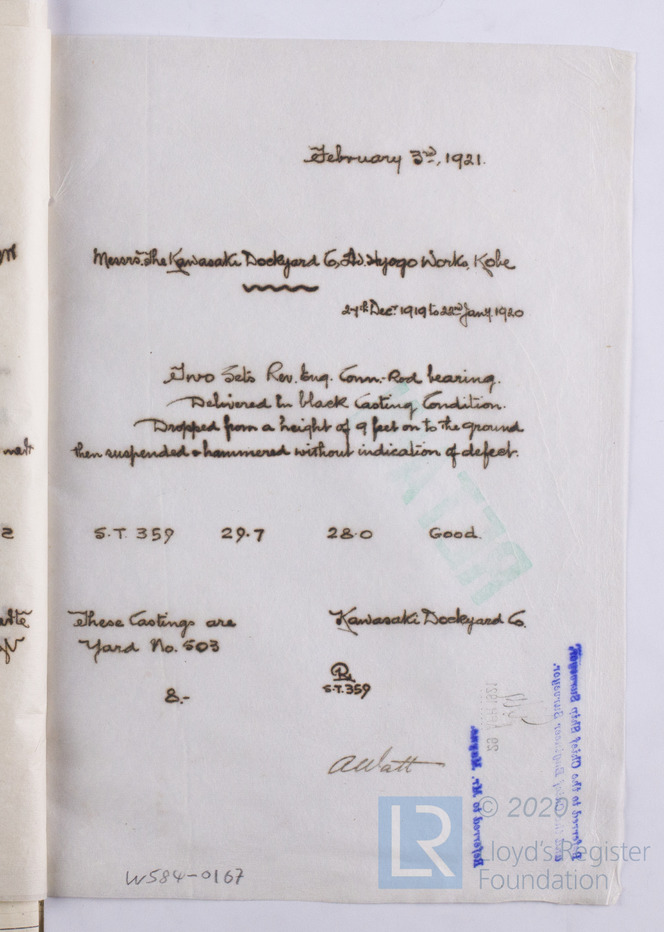 February 3rd, 1921.
Messrs. The Kawasaki Dockyard Co, Ltd. Hyogo Works, Kobe
27th Dec. 1919 to 22nd Jany. 1920
Two Sets Rev. Eng. Conn.-Rod bearing.
Delivered In black Casting Condition.
Dropped from a height of 9 feet on to the ground
then suspended & hammered without indication of defect.
S.T. 359 29.7 28.0 Good.
These Castings are
Yard No. 503
8.-
Kawasaki Dockyard Co.
S.T. 359
AWatt
29 APR 1921
Referred to the Chief Ship Surveyor
Chief Engineer Surveyor.
Referred to Mr.
W584-0167
LR © 2020
Lloyd's Register
Foundation